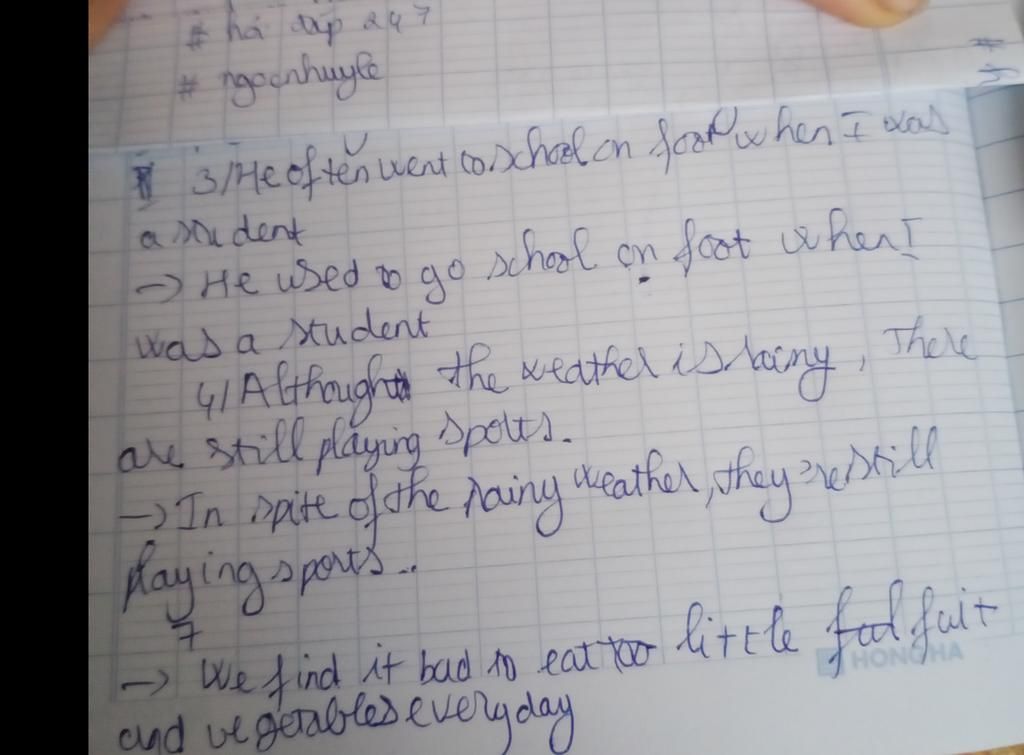 # há đáp 247
# ngocnhuyle
3/ He often went to school on foot when I was
a student
→ He used to go school on foot when I
was a student
4/ Although the weather is rainy, There
are still playing sports.
→ In spite of the rainy weather, they are still
playing sports..
7
→ We find it bad to eat too little fuit
HONG HA
and vegetables everyday